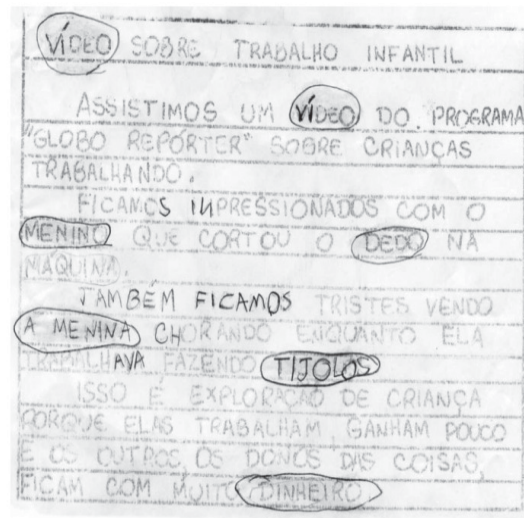 VÍDEO SOBRE TRABALHO INFANTIL
ASSISTIMOS UM VÍDEO DO PROGRAMA
"GLOBO REPÓRTER" SOBRE CRIANÇAS
TRABALHANDO.
FICAMOS IMPRESSIONADOS COM O
MENINO QUE CORTOU O DEDO NA
MÁQUINA.
TAMBÉM FICAMOS TRISTES VENDO
A MENINA CHORANDO ENQUANTO ELA
TRABALHAVA FAZENDO TIJOLOS
ISSO É EXPLORAÇÃO DE CRIANÇA
PORQUE ELAS TRABALHAM, GANHAM POUCO
E OS OUTROS, OS DONOS DAS COISAS,
FICAM COM MUITO DINHEIRO.